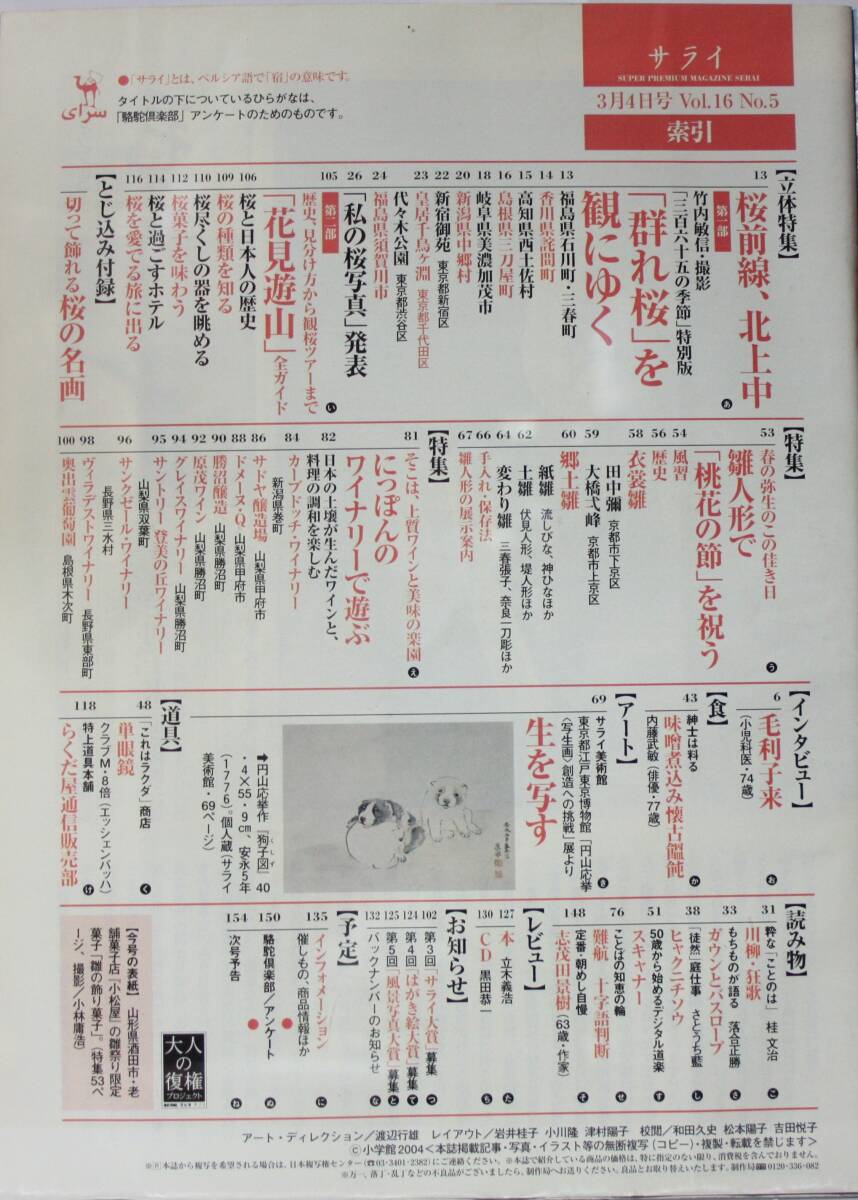 サライ
SUPER PREMIUM MAGAZINE SERAI
3月4日号 Vol.16 No.5
索引
●「サライ」とは、ペルシア語で「宿」の意味です。
タイトルの下についているひらがなは、
「駱駝倶楽部」アンケートのためのものです。
سرای
【立体特集】
13 桜前線、北上中 あ
第一部
竹内敏信・撮影
「三百六十五の季節」特別版
「群れ桜」を
観にゆく
13 福島県石川町・三春町
14 香川県詫間町
15 高知県西土佐村
16 島根県三刀屋町
18 岐阜県美濃加茂市
20 新潟県中郷村
22 新宿御苑 東京都新宿区
23 皇居千鳥ヶ淵 東京都千代田区
代々木公園 東京都渋谷区
24 福島県須賀川市
26 「私の桜写真」発表
105 第二部
歴史、見分け方から観桜ツアーまで い
「花見遊山」全ガイド
106 桜と日本人の歴史
109 桜の種類を知る
110 桜尽くしの器を眺める
112 桜菓子を味わう
114 桜と過ごすホテル
116 桜を愛でる旅に出る
【とじ込み付録】
切って飾れる桜の名画
【特集】
53 春の弥生のこの佳き日 う
雛人形で
「桃花の節」を祝う
54 風習
56 歴史
58 衣裳雛
田中彌 京都市下京区
59 大橋弌峰 京都市上京区
60 郷土雛
紙雛 流しびな、神ひなほか
62 土雛 伏見人形、堤人形ほか
64 変わり雛 三春張子、奈良一刀彫ほか
66 手入れ・保存法
67 雛人形の展示案内
【特集】
81 そこは、上質ワインと美味の楽園 え
にっぽんの
ワイナリーで遊ぶ
82 日本の土壌が生んだワインと、
料理の調和を楽しむ
84 カーブドッチ・ワイナリー
新潟県巻町
86 サドヤ醸造場 山梨県甲府市
88 ドメーヌ・Q 山梨県甲府市
90 勝沼醸造 山梨県勝沼町
92 原茂ワイン 山梨県勝沼町
94 グレイスワイナリー 山梨県勝沼町
95 サントリー 登美の丘ワイナリー
山梨県双葉町
96 サンクゼール・ワイナリー
長野県三水村
98 ヴィラデストワイナリー 長野県東部町
100 奥出雲葡萄園 島根県木次町
【インタビュー】
6 毛利子来 お
(小児科医・74歳)
【食】
43 紳士は料る
味噌煮込み懐古饂飩 か
内藤武敏(俳優・77歳)
【アート】
69 サライ美術館
東京都江戸東京博物館「円山応挙
〈写生画〉創造への挑戦」展より き
生を写す
➡円山応挙作『狗子図』40
くしず
・4×55・9㎝、安永5年
(1776)。個人蔵(サライ
美術館・69ページ)
【道具】
48 「これはラクダ」商店
単眼鏡 く
クラブM・8倍(エッシェンバッハ)
118 特上道具本舗
らくだ屋通信販売部 け
【読み物】
31 粋な「ことのは」 桂 文治
川柳・狂歌 こ
33 もちものが語る 落合正勝
ガウンとバスローブ さ
38 「徒然」庭仕事 さとうち藍
ヒャクニチソウ し
51 50歳から始めるデジタル道楽
スキャナー す
76 ことばの知恵の輪
難航 十字語判断 せ
148 定番・朝めし自慢
志茂田景樹(63歳・作家) そ
【レビュー】
127 本 立木義浩 た
130 CD 黒田恭一 ち
【お知らせ】
102 第3回「サライ大賞」募集 つ
124 第4回「はがき絵大賞」募集 て
125 第5回「風景写真大賞」募集 と
132 バックナンバーのお知らせ な
【予定】
135 インフォメーション に
催しもの、商品情報ほか
150 駱駝倶楽部/アンケート ぬ
154 次号予告 ね
大人
の
復権
プロジェクト
【今号の表紙】 山形県酒田市・老
舗菓子店「小松屋」の雛祭り限定
菓子「雛の飾り菓子」。(特集53ペ
ージ、撮影/小林庸浩)
アート・ディレクション/渡辺行雄 レイアウト/岩井桂子 小川隆 津村陽子 校閲/和田久史 松本陽子 吉田悦子
©小学館2004<本誌掲載記事・写真・イラスト等の無断複写(コピー)・複製・転載を禁じます>
※Ⓡ本誌から複写を希望される場合は、日本複写権センター(☎03-3401-2382)にご連絡ください。※本誌で紹介している商品の価格は、特に指定のない限り、消費税を含んでおりません。
※万一、落丁・乱丁などの不良品がございましたら、制作局へお送りください。良品とお取り替えいたします。制作局0120-336-082